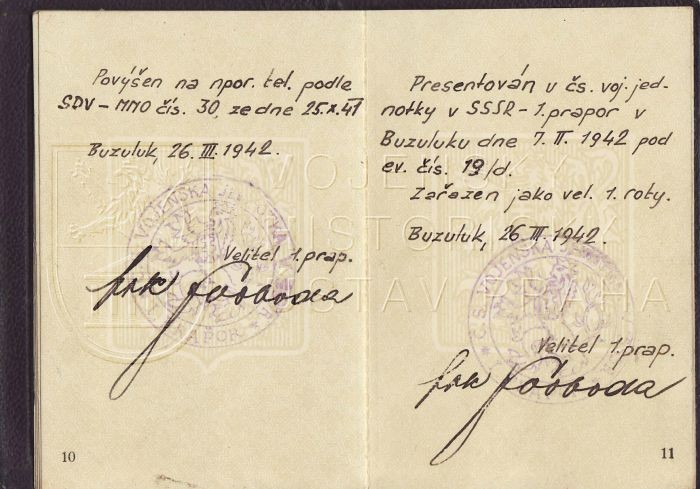 Povýšen na npor. tel. podle
SDV – MNO čís. 30, ze dne 25.X.41
Buzuluk, 26. III. 1942.
Velitel 1. prap.
Svoboda
10
Presentován u čs. voj. jed-
notky v SSSR – 1. prapor v
Buzuluku dne 7. II. 1942 pod
ev. čís. 19/d.
Zařazen jako vel. 1. roty.
Buzuluk, 26. III. 1942.
Velitel 1. prap.
Svoboda
11
VOJENSKÝ
HISTORICKÝ
ÚSTAV PRAHA